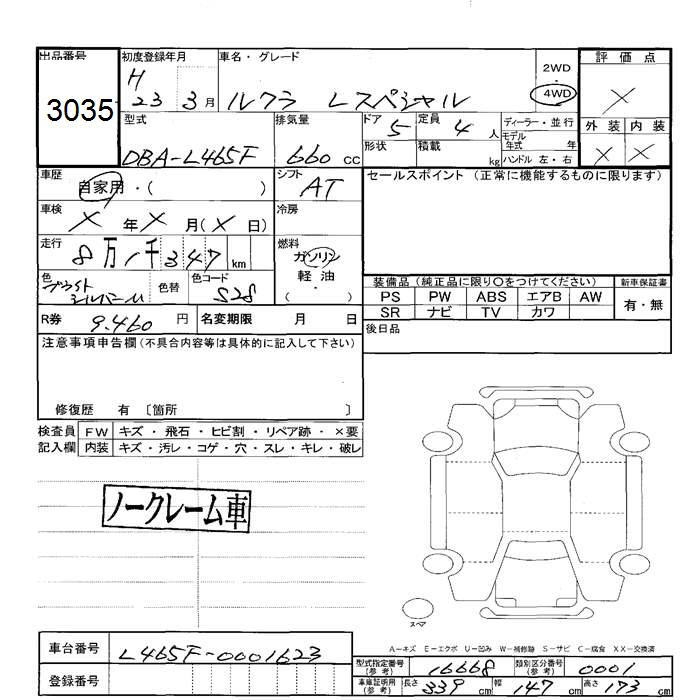 出品番号 初度登録年月 車名・グレード 2WD ・ 4WD 評価点
3035 H 23 3月 ルクラ Lスペシャル ×
型式 排気量 ドア 5 定員 4人 ディーラー・並行 外装 内装
DBA-L465F 660 cc 形状 積載 kg モデル年式 年 × ×
ハンドル 左・右
車歴 自家用・( ) シフト AT セールスポイント (正常に機能するものに限ります)
車検 × 年 × 月(× 日) 冷房
走行 8万1千347 km 燃料 ガソリン
軽油
・( )
色 ブライトシルバーM 色替 色コード S28
装備品 (純正品に限り〇をつけてください) 新車保証書
PS PW ABS エアB AW 有・無
SR ナビ TV カワ
R券 9.460 円 名変期限 月 日 後日品
注意事項申告欄(不具合内容等は具体的に記入して下さい)
修復歴 有 〔箇所 〕
検査員 FW キズ・飛石・ヒビ割・リペア跡・×要
記入欄 内装 キズ・汚レ・コゲ・穴・スレ・キレ・破レ
ノークレーム車
スペア
A-キズ E-エクボ U-凹み W-補修跡 S-サビ C-腐食 XX-交換済
車台番号 L465F-0001623
型式指定番号(参考) 16668 類別区分番号(参考) 0001
登録番号 車庫証明用(参考) 長さ 339 cm 幅 147 cm 高さ 173 cm